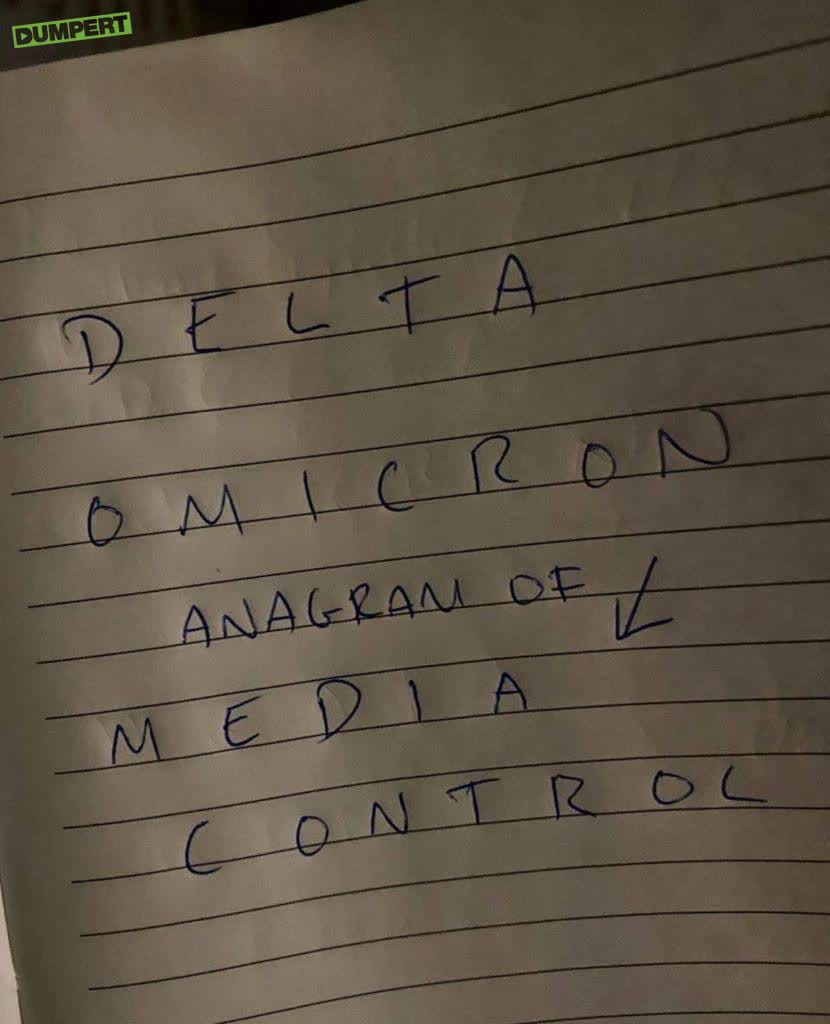 DUMPERT
DELTA
OMICRON
ANAGRAM OF
MEDIA
CONTROL